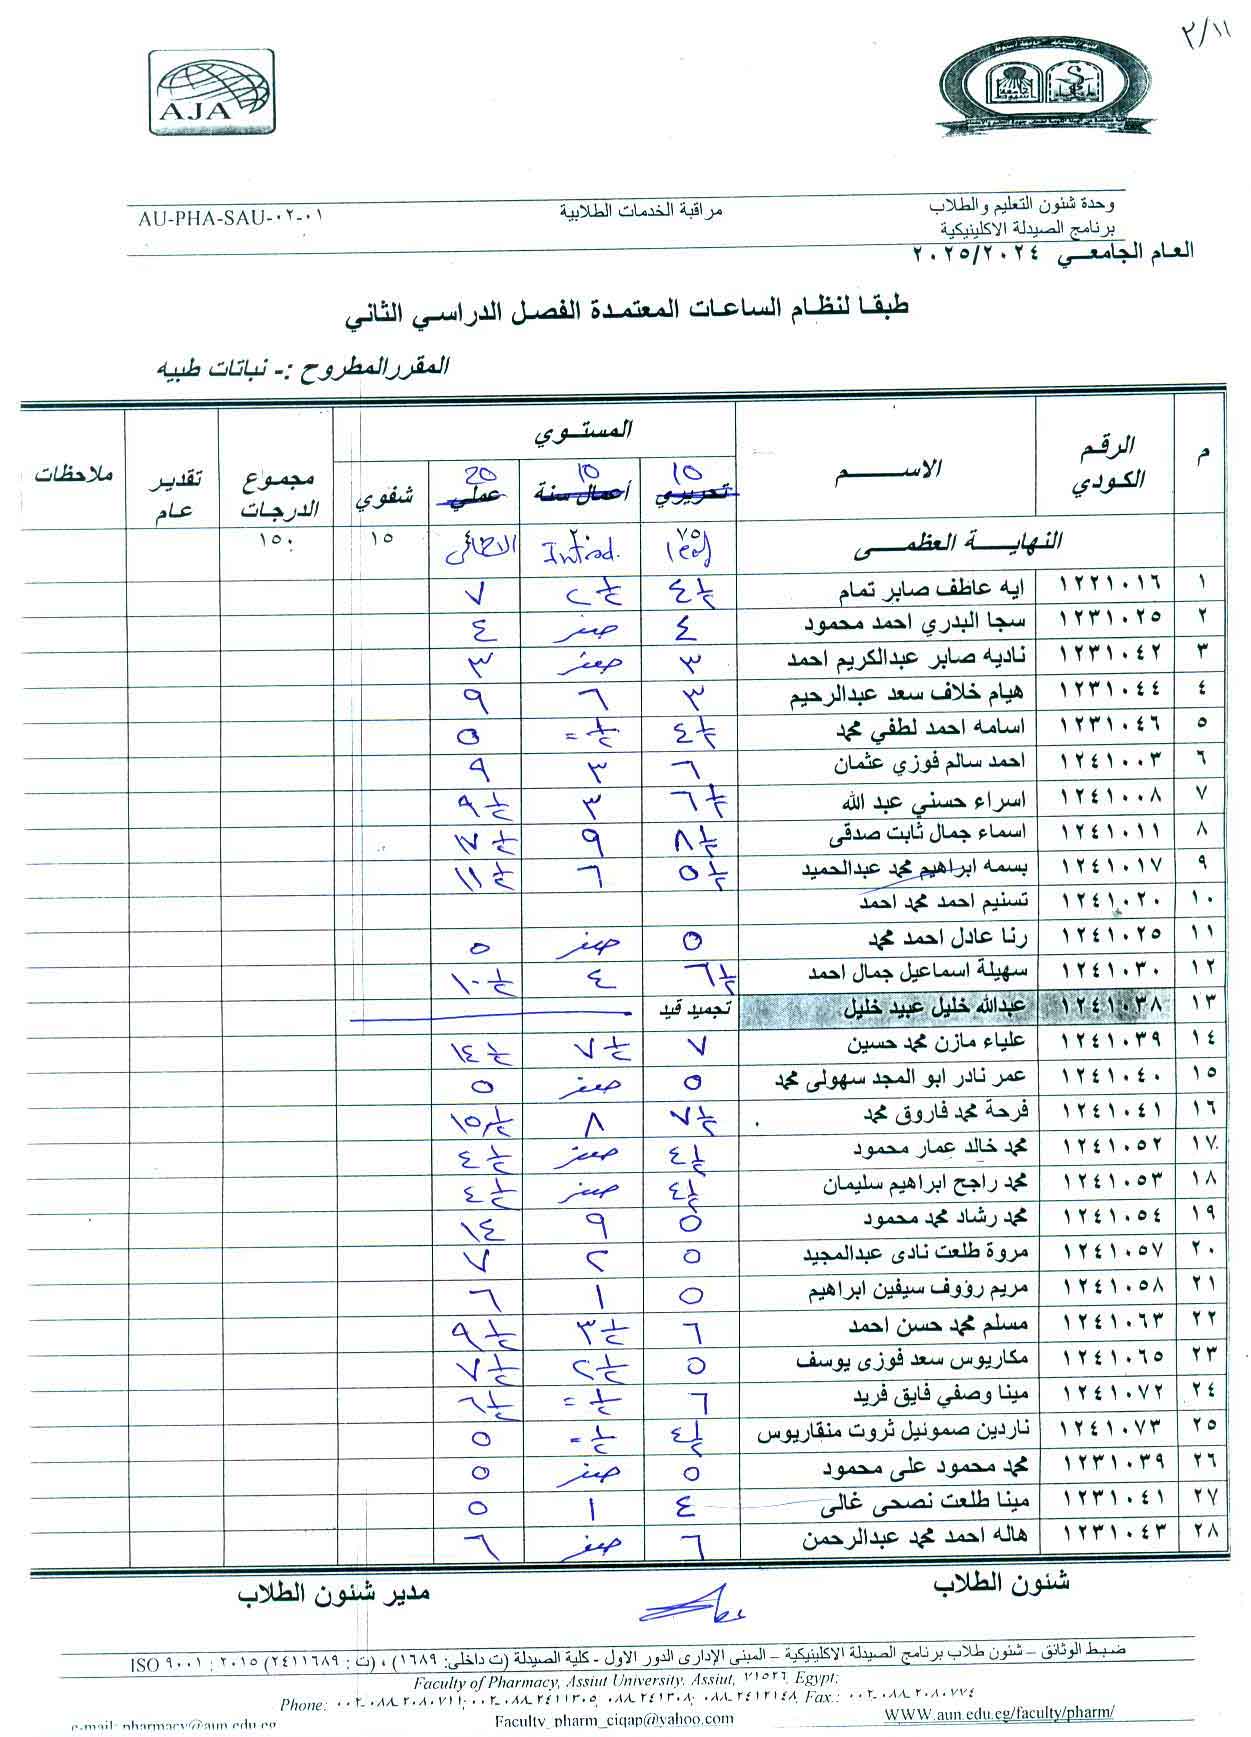 ٢/١١
AJA
وحدة شئون التعليم والطلاب
برنامج الصيدلة الاكلينيكية
مراقبة الخدمات الطلابية
AU-PHA-SAU-٠٢-٠١
العام الجامعي ٢٠٢٥/٢٠٢٤
طبقا لنظام الساعات المعتمدة الفصل الدراسي الثاني
المقرر المطروح :- نباتات طبيه
م الرقم الكودي الاسم المستوي مجموع الدرجات تقدير عام ملاحظات
10 تحريري 10 أعمال سنة 20 عملي شفوي
النهاية العظمى ٧٥ leaf ٢٠ Introd. ٤٠ الاجمالى ١٥ ١٥٠
١ ١٢٢١٠١٦ ايه عاطف صابر تمام ٤ ١/٢ ٢ ١/٢ ٧
٢ ١٢٣١٠٢٥ سجا البدري احمد محمود ٤ صفر ٤
٣ ١٢٣١٠٤٢ ناديه صابر عبدالكريم احمد ٣ صفر ٣
٤ ١٢٣١٠٤٤ هيام خلاف سعد عبدالرحيم ٣ ٦ ٩
٥ ١٢٣١٠٤٦ اسامه احمد لطفي محمد ٤ ١/٢ = ١/٢ ٥
٦ ١٢٤١٠٠٣ احمد سالم فوزي عثمان ٦ ٣ ٩
٧ ١٢٤١٠٠٨ اسراء حسني عبد الله ٦ ١/٢ ٣ ٩ ١/٢
٨ ١٢٤١٠١١ اسماء جمال ثابت صدقى ٨ ١/٢ ٩ ١٧ ١/٢
٩ ١٢٤١٠١٧ بسمه ابراهيم محمد عبدالحميد ٥ ١/٢ ٦ ١١ ١/٢
١٠ ١٢٤١٠٢٠ تسنيم احمد محمد احمد
١١ ١٢٤١٠٢٥ رنا عادل احمد محمد ٥ صفر ٥
١٢ ١٢٤١٠٣٠ سهيلة اسماعيل جمال احمد ٦ ١/٢ ٤ ١٠ ١/٢
١٣ ١٢٤١٠٣٨ عبدالله خليل عبيد خليل تجميد قيد
١٤ ١٢٤١٠٣٩ علياء مازن محمد حسين ٧ ٧ ١/٢ ١٤ ١/٢
١٥ ١٢٤١٠٤٠ عمر نادر ابو المجد سهولى محمد ٥ صفر ٥
١٦ ١٢٤١٠٤١ فرحة محمد فاروق محمد ٧ ١/٢ ٨ ١٥ ١/٢
١٧ ١٢٤١٠٥٢ محمد خالد عمار محمود ٤ ١/٢ صفر ٤ ١/٢
١٨ ١٢٤١٠٥٣ محمد راجح ابراهيم سليمان ٤ ١/٢ صفر ٤ ١/٢
١٩ ١٢٤١٠٥٤ محمد رشاد محمد محمود ٥ ٩ ١٤
٢٠ ١٢٤١٠٥٧ مروة طلعت نادى عبدالمجيد ٥ ٢ ٧
٢١ ١٢٤١٠٥٨ مريم رؤوف سيفين ابراهيم ٥ ١ ٦
٢٢ ١٢٤١٠٦٣ مسلم محمد حسن احمد ٦ ٣ ١/٢ ٩ ١/٢
٢٣ ١٢٤١٠٦٥ مكاريوس سعد فوزى يوسف ٥ ٢ ١/٢ ٧ ١/٢
٢٤ ١٢٤١٠٧٢ مينا وصفي فايق فريد ٦ = ١/٢ ٦ ١/٢
٢٥ ١٢٤١٠٧٣ ناردين صموئيل ثروت منقاريوس ٤ ١/٢ = ١/٢ ٥
٢٦ ١٢٣١٠٣٩ محمد محمود على محمود ٥ صفر ٥
٢٧ ١٢٣١٠٤١ مينا طلعت نصحى غالى ٤ ١ ٥
٢٨ ١٢٣١٠٤٣ هاله احمد محمد عبدالرحمن ٦ صفر ٦
شئون الطلاب
مدير شئون الطلاب
ضبط الوثائق – شئون طلاب برنامج الصيدلة الاكلينيكية – المبنى الإدارى الدور الاول - كلية الصيدلة (ت داخلى: ١٦٨٩) ، (ت : ٢٤١١٦٨٩) ISO ٩٠٠١ : ٢٠١٥
Faculty of Pharmacy, Assiut University, Assiut, ٧١٥٢٦, Egypt;
Phone: ٠٠٢-٠٨٨-٢٠٨٠٧١١; ٠٠٢-٠٨٨-٢٤١١٣٠٥, ٠٨٨-٢٤١٣٠٨; ٠٨٨-٢٤١٢١٤٨, Fax.: ٠٠٢-٠٨٨-٢٠٨٠٧٧٤
e-mail: pharmacy@aun.edu.eg Faculty_pharm_ciqap@yahoo.com WWW.aun.edu.eg/faculty/pharm/